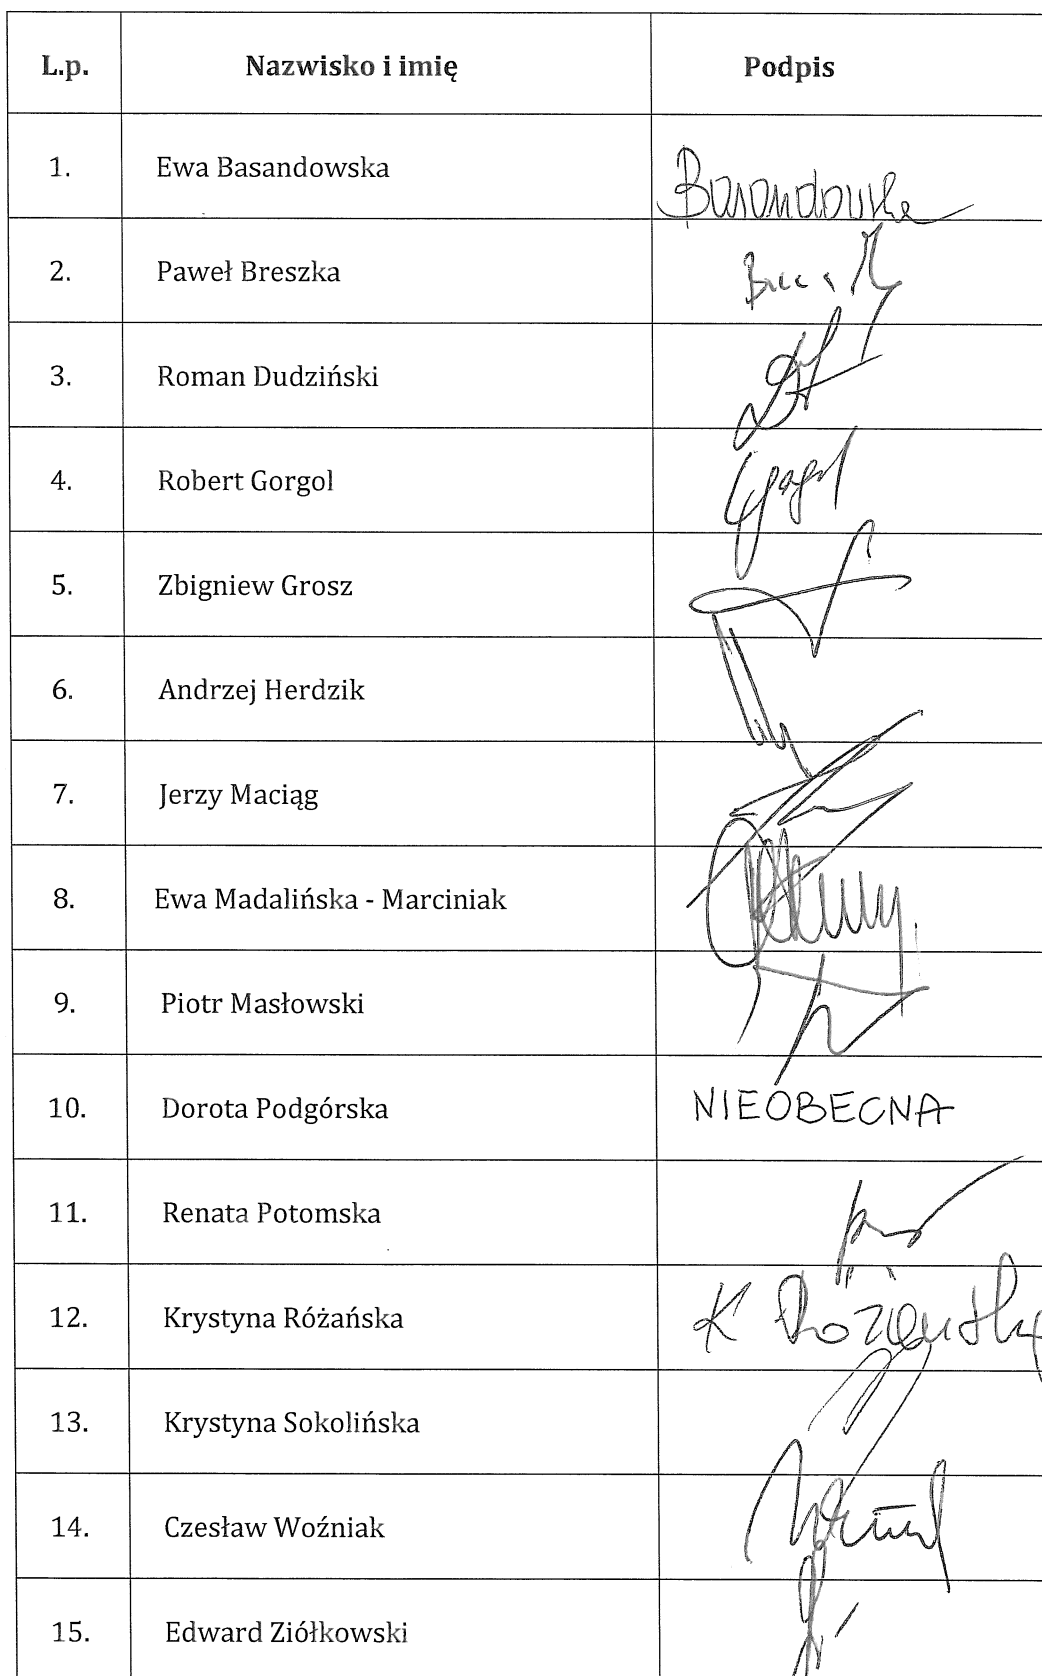 L.p. Nazwisko i imię Podpis
1. Ewa Basandowska Basandowska
2. Paweł Breszka
3. Roman Dudziński
4. Robert Gorgol Gorgol
5. Zbigniew Grosz
6. Andrzej Herdzik
7. Jerzy Maciąg
8. Ewa Madalińska - Marciniak
9. Piotr Masłowski
10. Dorota Podgórska NIEOBECNA
11. Renata Potomska
12. Krystyna Różańska K Różańska
13. Krystyna Sokolińska
14. Czesław Woźniak
15. Edward Ziółkowski